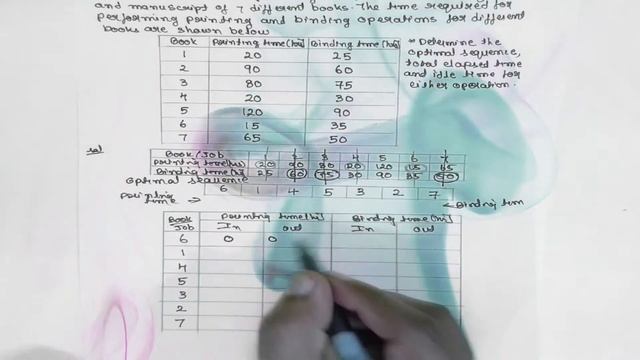 and manuscript of 7 different books. The time required for
performing printing and binding operations for different
books are shown below
Book Printing time (hrs) Binding time (hrs)
1 20 25
2 90 60
3 80 75
4 20 30
5 120 90
6 15 35
7 65 50
* Determine the
optimal sequence,
total elapsed time
and idle time for
either operation.
sol
Book/Job 1 2 3 4 5 6 7
Printing time (hrs) 20 90 80 20 120 15 65
Binding time (hr) 25 60 75 30 90 35 50
Optimal sequence
6 1 4 5 3 2 7
Printing
time →
← Binding time
Book
Job
Printing time (hr) Binding time (hr)
In out In out
6 0 0
1
4
5
3
2
7